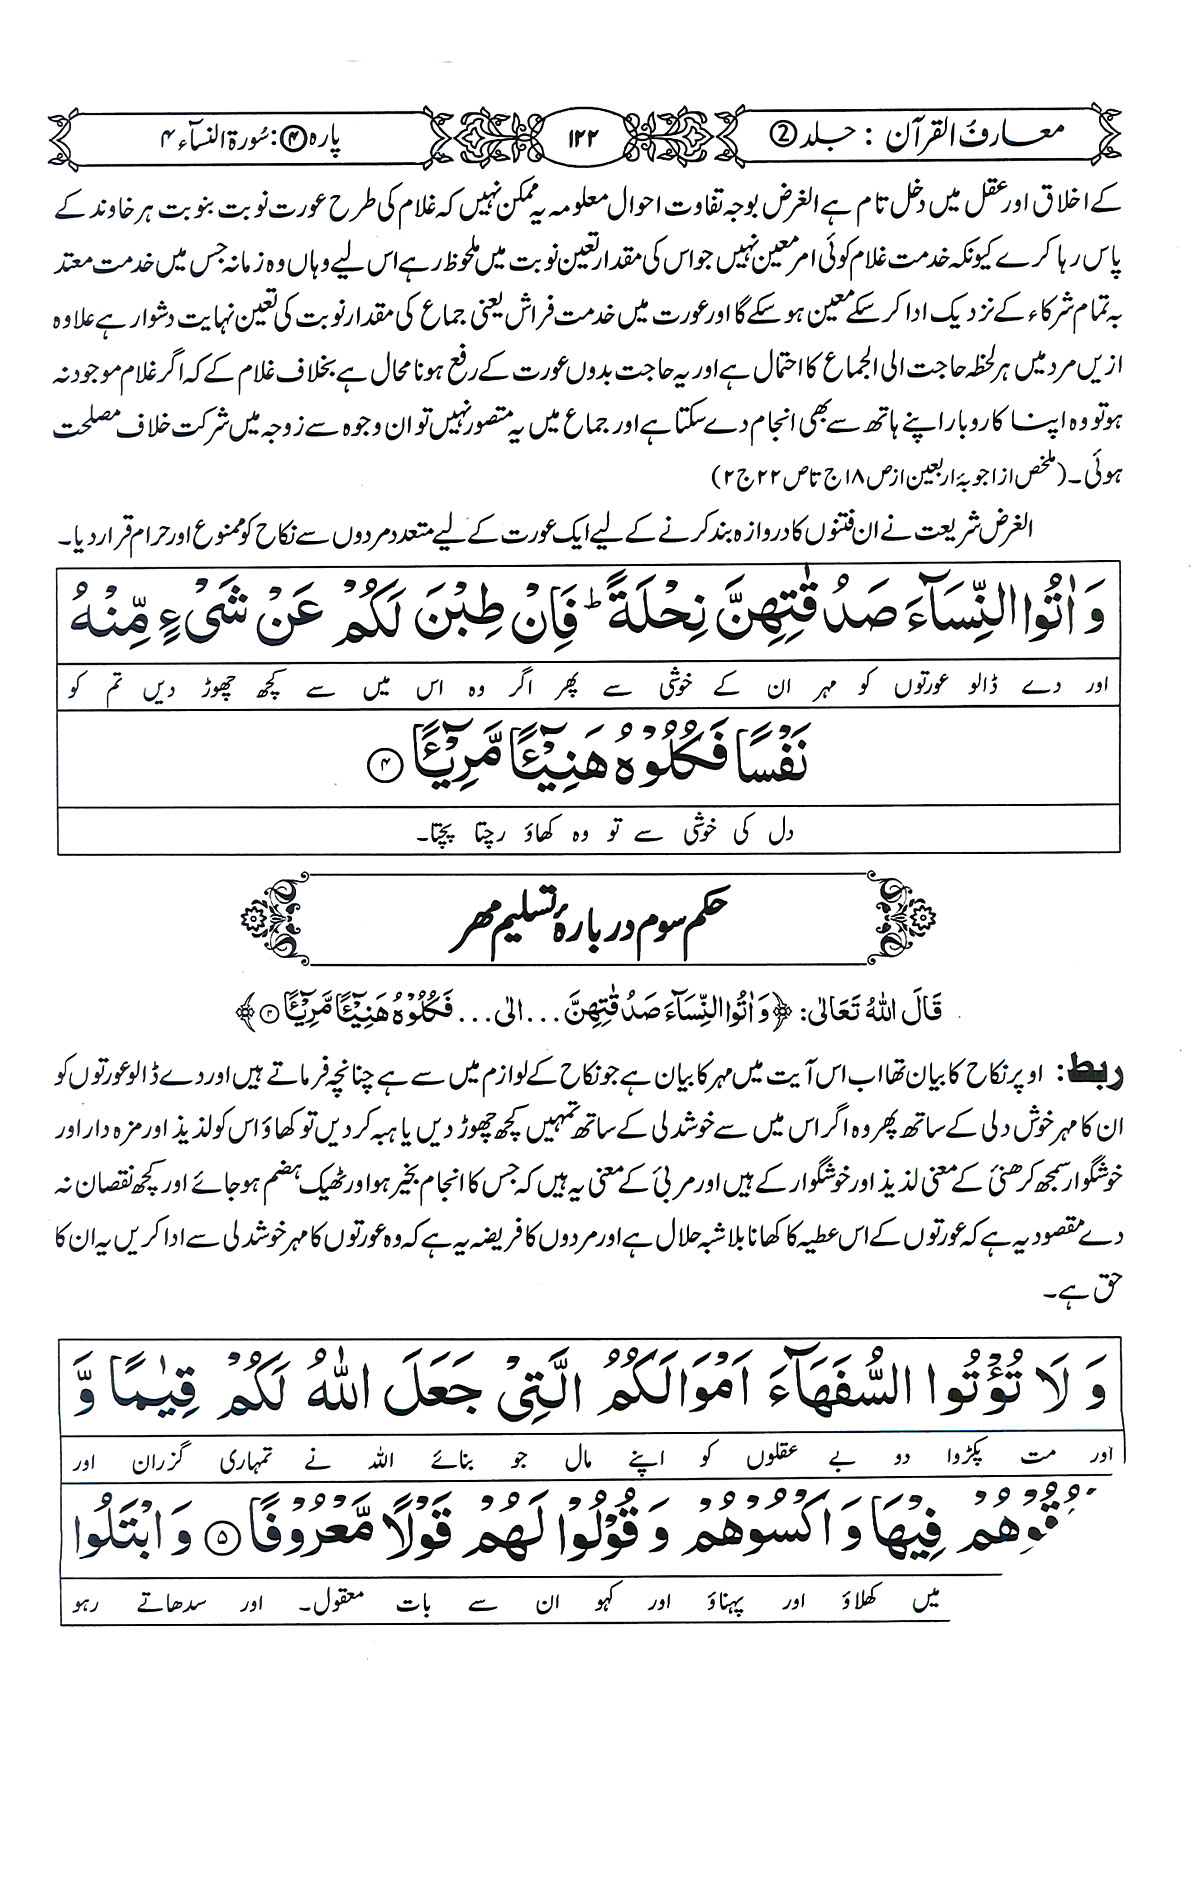 معارف القرآن : جلد ② ۱۲۲ پارہ ④ : سُورۃ النسآء ۴
کے اخلاق اور عقل میں دخل تام ہے الغرض بوجہ تفاوت احوال معلومہ یہ ممکن نہیں کہ غلام کی طرح عورت نوبت بنوبت ہر خاوند کے
پاس رہا کرے کیونکہ خدمت غلام کوئی امر معین نہیں جو اس کی مقدار تعین نوبت میں ملحوظ رہے اس لیے وہاں وہ زمانہ جس میں خدمت معتد
بہ تمام شرکاء کے نزدیک ادا کر سکے معین ہو سکے گا اور عورت میں خدمت فراش یعنی جماع کی مقدار نوبت کی تعین نہایت دشوار ہے علاوہ
ازیں مرد میں ہر لحظہ حاجت الی الجماع کا احتمال ہے اور یہ حاجت بدوں عورت کے رفع ہونا محال ہے بخلاف غلام کے کہ اگر غلام موجود نہ
ہو تو وہ اپنا کاروبار اپنے ہاتھ سے بھی انجام دے سکتا ہے اور جماع میں یہ متصور نہیں تو ان وجوہ سے زوجہ میں شرکت خلاف مصلحت
ہوئی۔ (ملخص از اجوبۂ اربعین از ص ۱۸ ج تا ص ۲۲ ج ۲)
الغرض شریعت نے ان فتنوں کا دروازہ بند کرنے کے لیے ایک عورت کے لیے متعدد مردوں سے نکاح کو ممنوع اور حرام قرار دیا۔
وَ اٰتُوا النِّسَآءَ صَدُقٰتِهِنَّ نِحْلَةً ؕ فَاِنْ طِبْنَ لَكُمْ عَنْ شَیْءٍ مِّنْهُ
اور دے ڈالو عورتوں کو مہر ان کے خوشی سے پھر اگر وہ اس میں سے کچھ چھوڑ دیں تم کو
نَفْسًا فَكُلُوْهُ هَنِیْٓـًٔا مَّرِیْٓـًٔا ۴
دل کی خوشی سے تو وہ کھاؤ رچتا پچتا۔
حکم سوم دربارۂ تسلیم مہر
قَالَ اللهُ تَعَالٰی: ﴿وَ اٰتُوا النِّسَآءَ صَدُقٰتِهِنَّ ... الٰی ... فَكُلُوْهُ هَنِیْٓـًٔا مَّرِیْٓـًٔا ۴﴾
ربط: اوپر نکاح کا بیان تھا اب اس آیت میں مہر کا بیان ہے جو نکاح کے لوازم میں سے ہے چنانچہ فرماتے ہیں اور دے ڈالو عورتوں کو
ان کا مہر خوش دلی کے ساتھ پھر وہ اگر اس میں سے خوشدلی کے ساتھ تمہیں کچھ چھوڑ دیں یا ہبہ کر دیں تو کھاؤ اس کو لذیذ اور مزہ دار اور
خوشگوار سمجھ کر ھنئی کے معنی لذیذ اور خوشگوار کے ہیں اور مریٔ کے معنی یہ ہیں کہ جس کا انجام بخیر ہو اور ٹھیک ہضم ہو جائے اور کچھ نقصان نہ
دے مقصود یہ ہے کہ عورتوں کے اس عطیہ کا کھانا بلا شبہ حلال ہے اور مردوں کا فریضہ یہ ہے کہ وہ عورتوں کا مہر خوشدلی سے ادا کریں یہ ان کا
حق ہے۔
وَ لَا تُؤْتُوا السُّفَهَآءَ اَمْوَالَكُمُ الَّتِیْ جَعَلَ اللّٰهُ لَكُمْ قِیٰمًا وَّ
اور مت پکڑوا دو بے عقلوں کو اپنے مال جو بنائے اللہ نے تمہاری گزران اور
قُوْهُمْ فِیْهَا وَ اكْسُوْهُمْ وَ قُوْلُوْا لَهُمْ قَوْلًا مَّعْرُوْفًا ۵ وَ ابْتَلُوا
میں کھلاؤ اور پہناؤ اور کہو ان سے بات معقول۔ اور سدھاتے رہو